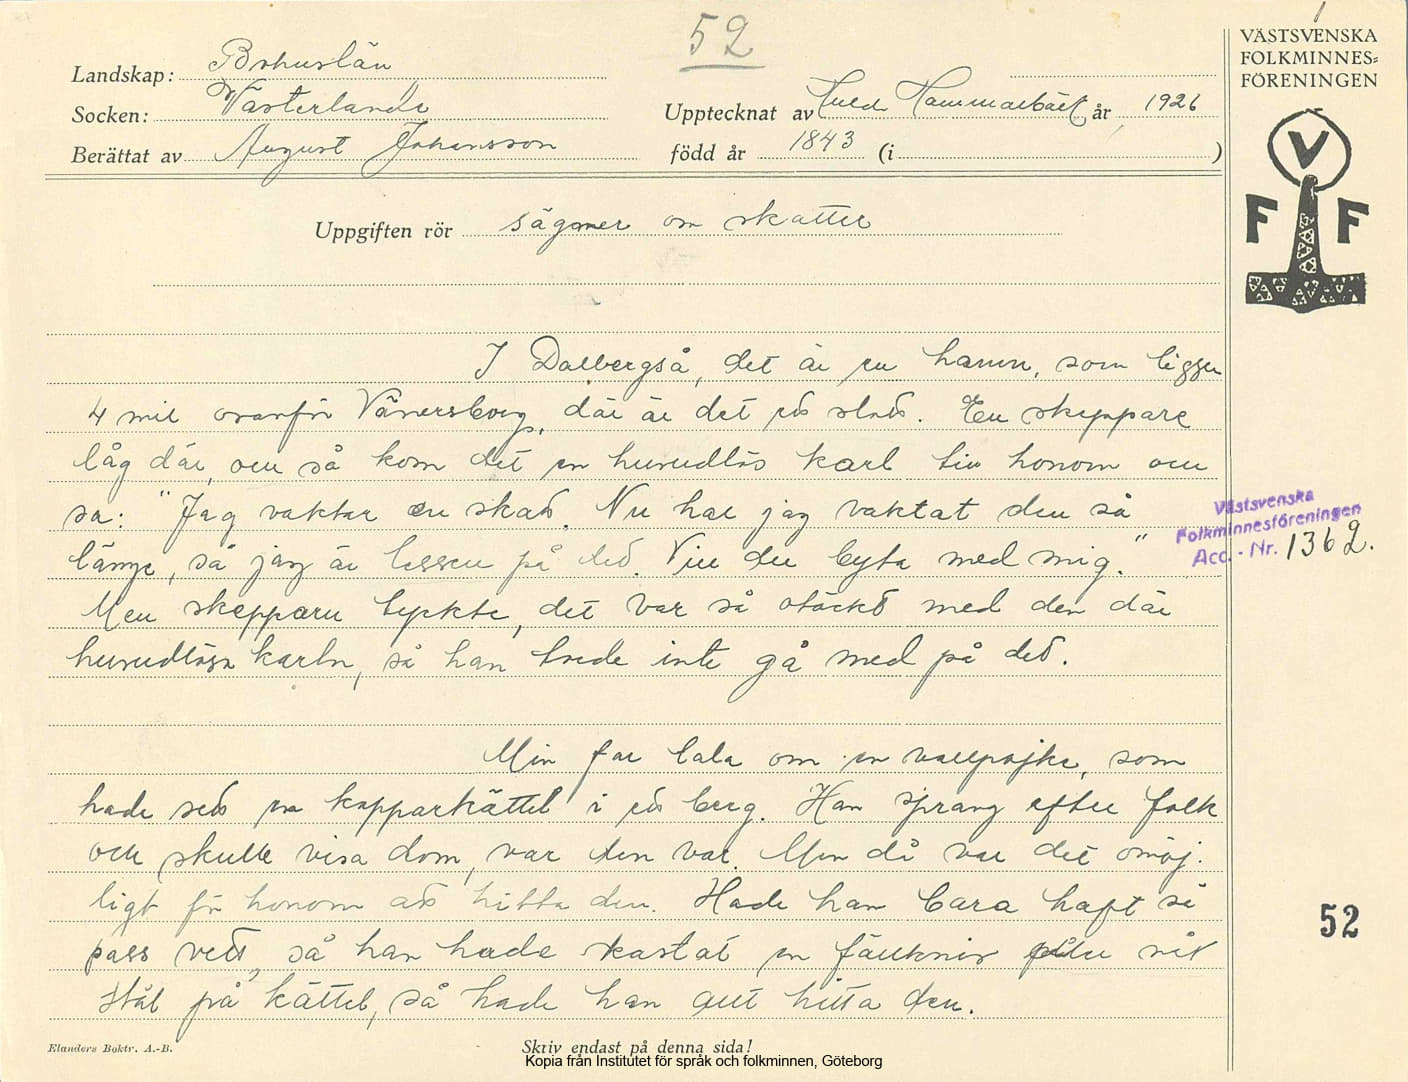 52
VÄSTSVENSKA
FOLKMINNES=
FÖRENINGEN
Landskap: Bohuslän
Socken: Västerlanda
Upptecknat av Hammarbäck år 1926
Berättat av August Johansson
född år 1843 (i )
V
F F
Uppgiften rör sägner om skatter
I Dalbergså, det är en hamn, som ligger
4 mil ovanför Vänersborg, där är det ett slott. En skeppare
låg där, och så kom det en huvudlös karl till honom och
sa: "Jag vaktar en skatt. Nu har jag vaktat den så
länge, så jag är lessen på det. Vill du byta med mig."
Men skepparen tyckte, det var så otäckt med den där
huvudlösa karln, så han torde inte gå med på det.
Västsvenska
Folkminnesföreningen
Acc. - Nr. 1362.
Min far tala om en vallpojke, som
hade sett en kopparkättel i ett berg. Han sprang efter folk
och skulle visa dom, var den var. Men då var det omöj-
ligt för honom att hitta den. Hade han bara haft så
pass vett, så han hade kastat en fällkniv eller nåt
stål på kättel, så hade han gett hitta den.
52
Elanders Boktr. A.-B.
Skriv endast på denna sida!
Kopia från Institutet för språk och folkminnen, Göteborg